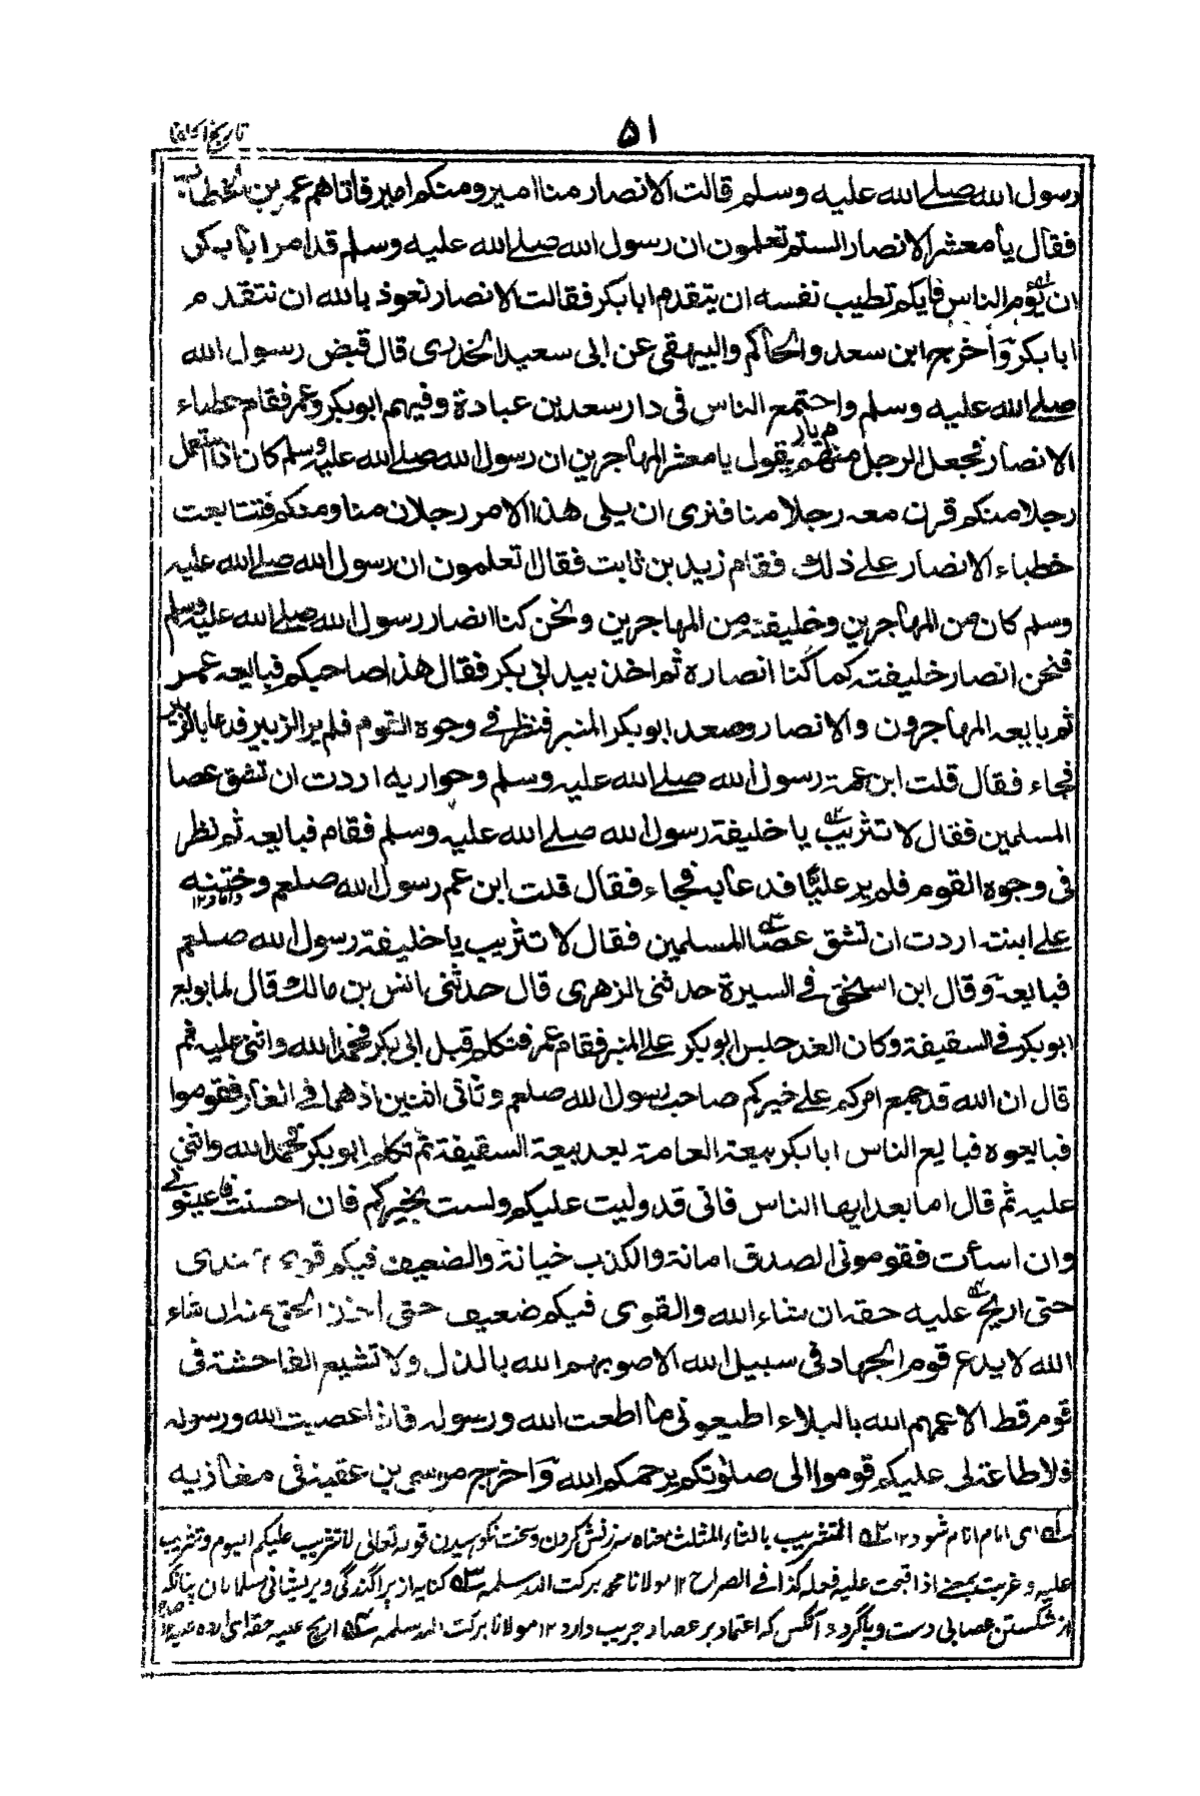 تاريخ الخلفا
۵۱
رسول الله صلے الله عليه وسلم قالت الانصار منا امير ومنكم امير فاتاهم عمر بن الخطاب
فقال يا معشر الانصار الستم تعلمون ان رسول الله صلے الله عليه وسلم قد امر ابا بكر
ان يؤم الناس فايكم تطيب نفسه ان يتقدم ابا بكر فقالت الانصار نعوذ بالله ان نتقدم
ابا بكر واخرج ابن سعد والحاكم والبيهقى عن ابى سعيد الخدرى قال قبض رسول الله
صلے الله عليه وسلم واجتمع الناس فى دار سعد بن عبادة وفيهم ابو بكر وعمر فقام خطباء
الانصار فجعل الرجل منهم يقول يا معشر المهاجرين ان رسول الله صلے الله عليه وسلم كان اذا استعمل
رجلا منكم قرن معه رجلا منا فنرى ان يلى هذا الامر رجلان منا ومنكم فتتابعت
خطباء الانصار علے ذلك فقام زيد بن ثابت فقال تعلمون ان رسول الله صلے الله عليه
وسلم كان من المهاجرين وخليفته من المهاجرين ونحن كنا انصار رسول الله صلے الله عليه وسلم
فنحن انصار خليفته كما كنا انصاره ثم اخذ بيد ابى بكر فقال هذا صاحبكم فبايعه عمر
ثم بايعه المهاجرون والانصار وصعد ابو بكر المنبر فنظر فے وجوه القوم فلم ير الزبير فدعا بالزبير
فجاء فقال قلت ابن عمة رسول الله صلے الله عليه وسلم وحواريه اردت ان تشق عصا
المسلمين فقال لا تثريب يا خليفة رسول الله صلے الله عليه وسلم فقام فبايعه ثم نظر
فى وجوه القوم فلم ير عليا فدعا به فجاء فقال قلت ابن عم رسول الله صلعم وختنه
علے ابنته اردت ان تشق عصا المسلمين فقال لا تثريب يا خليفة رسول الله صلعم
فبايعه وقال ابن اسحٰق فے السيرة حدثنى الزهرى قال حدثنى انس بن مالك قال لما بويع
ابو بكر فے السقيفة وكان الغد جلس ابو بكر علے المنبر فقام عمر فتكلم قبل ابى بكر فحمد الله واثنى عليه ثم
قال ان الله قد جمع امركم علے خيركم صاحب رسول الله صلعم وثانى اثنين اذ هما فے الغار فقوموا
فبايعوه فبايع الناس ابا بكر بيعة العامة بعد بيعة السقيفة ثم تكلم ابو بكر فحمد الله واثنى
عليه ثم قال اما بعد ايها الناس فانى قد وليت عليكم ولست بخيركم فان احسنت فاعينونے
وان اسأت فقومونى الصدق امانة والكذب خيانة والضعيف فيكم قوى عندى
حتى اريح عليه حقه ان شاء الله والقوى فيكم ضعيف حتى اخذ الحق منه ان شاء
الله لا يدع قوم الجهاد فى سبيل الله الا ضربهم الله بالذل ولا تشيع الفاحشة فى
قوم قط الا عمهم الله بالبلاء اطيعونى ما اطعت الله ورسوله فاذا عصيت الله ورسوله
فلا طاعة لى عليكم قوموا الى صلٰوتكم يرحمكم الله واخرج موسى بن عقبة فى مغازيه
۱ه اى امام انام شود ۱۲ ۲ه التثريب بالثاء المثلث معناه سرزنش كردن وسخت نكوهيدن قوله تعالى لا تثريب عليكم اليوم وتثريب
عليه بمعنے اذا قبحت عليه فعله كذا فے الصراح ۱۲ مولانا محمد بركت الله سلمه ۳ه كنايه از پراگندگى وپريشانى مسلمانان چنانكه
از شكستن عصا بى دست وپا گردد آنكس كه اعتماد بر عصا دارد ۱۲ مولانا بركت الله سلمه ۴ه اريح عليه حقه اى ارده عليه ۱۲